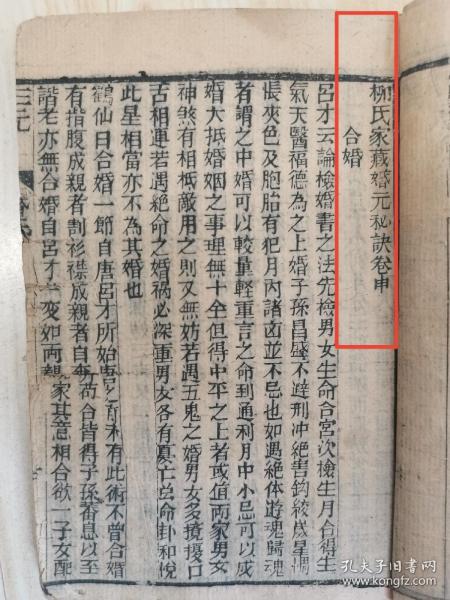 柳氏家藏婚元秘訣卷申
合婚
呂才云論檢婚書之法先檢男女生命合宮次檢生月合得生
氣天醫福德為之上婚子孫昌盛不避刑冲絶害鈎絞歲星惆
悵夾色及胞胎有犯月內諸凶並不忌也如遇絶体遊魂歸魂
者謂之中婚可以較量輕重言之命到通利月中小忌可以成
婚大抵婚姻之事理無十全但得中平之上者或值両家男女
神煞有相抵敵用之則又無妨若遇五鬼之婚男女多攪擾口
舌相連若遇絶命之婚禍必深重男女各有憂亡宮命卦和悅
此星相當亦不為其婚也
鶴仙曰合婚一節自唐呂才所始唐之前未有此術不曾合婚
有指腹成親者割衫襟成親者自無苟合皆得子孫蕃息以至
諧老亦無合婚自呂才一變如両親家其意相合欲一子女配
三元
孔夫子旧书网